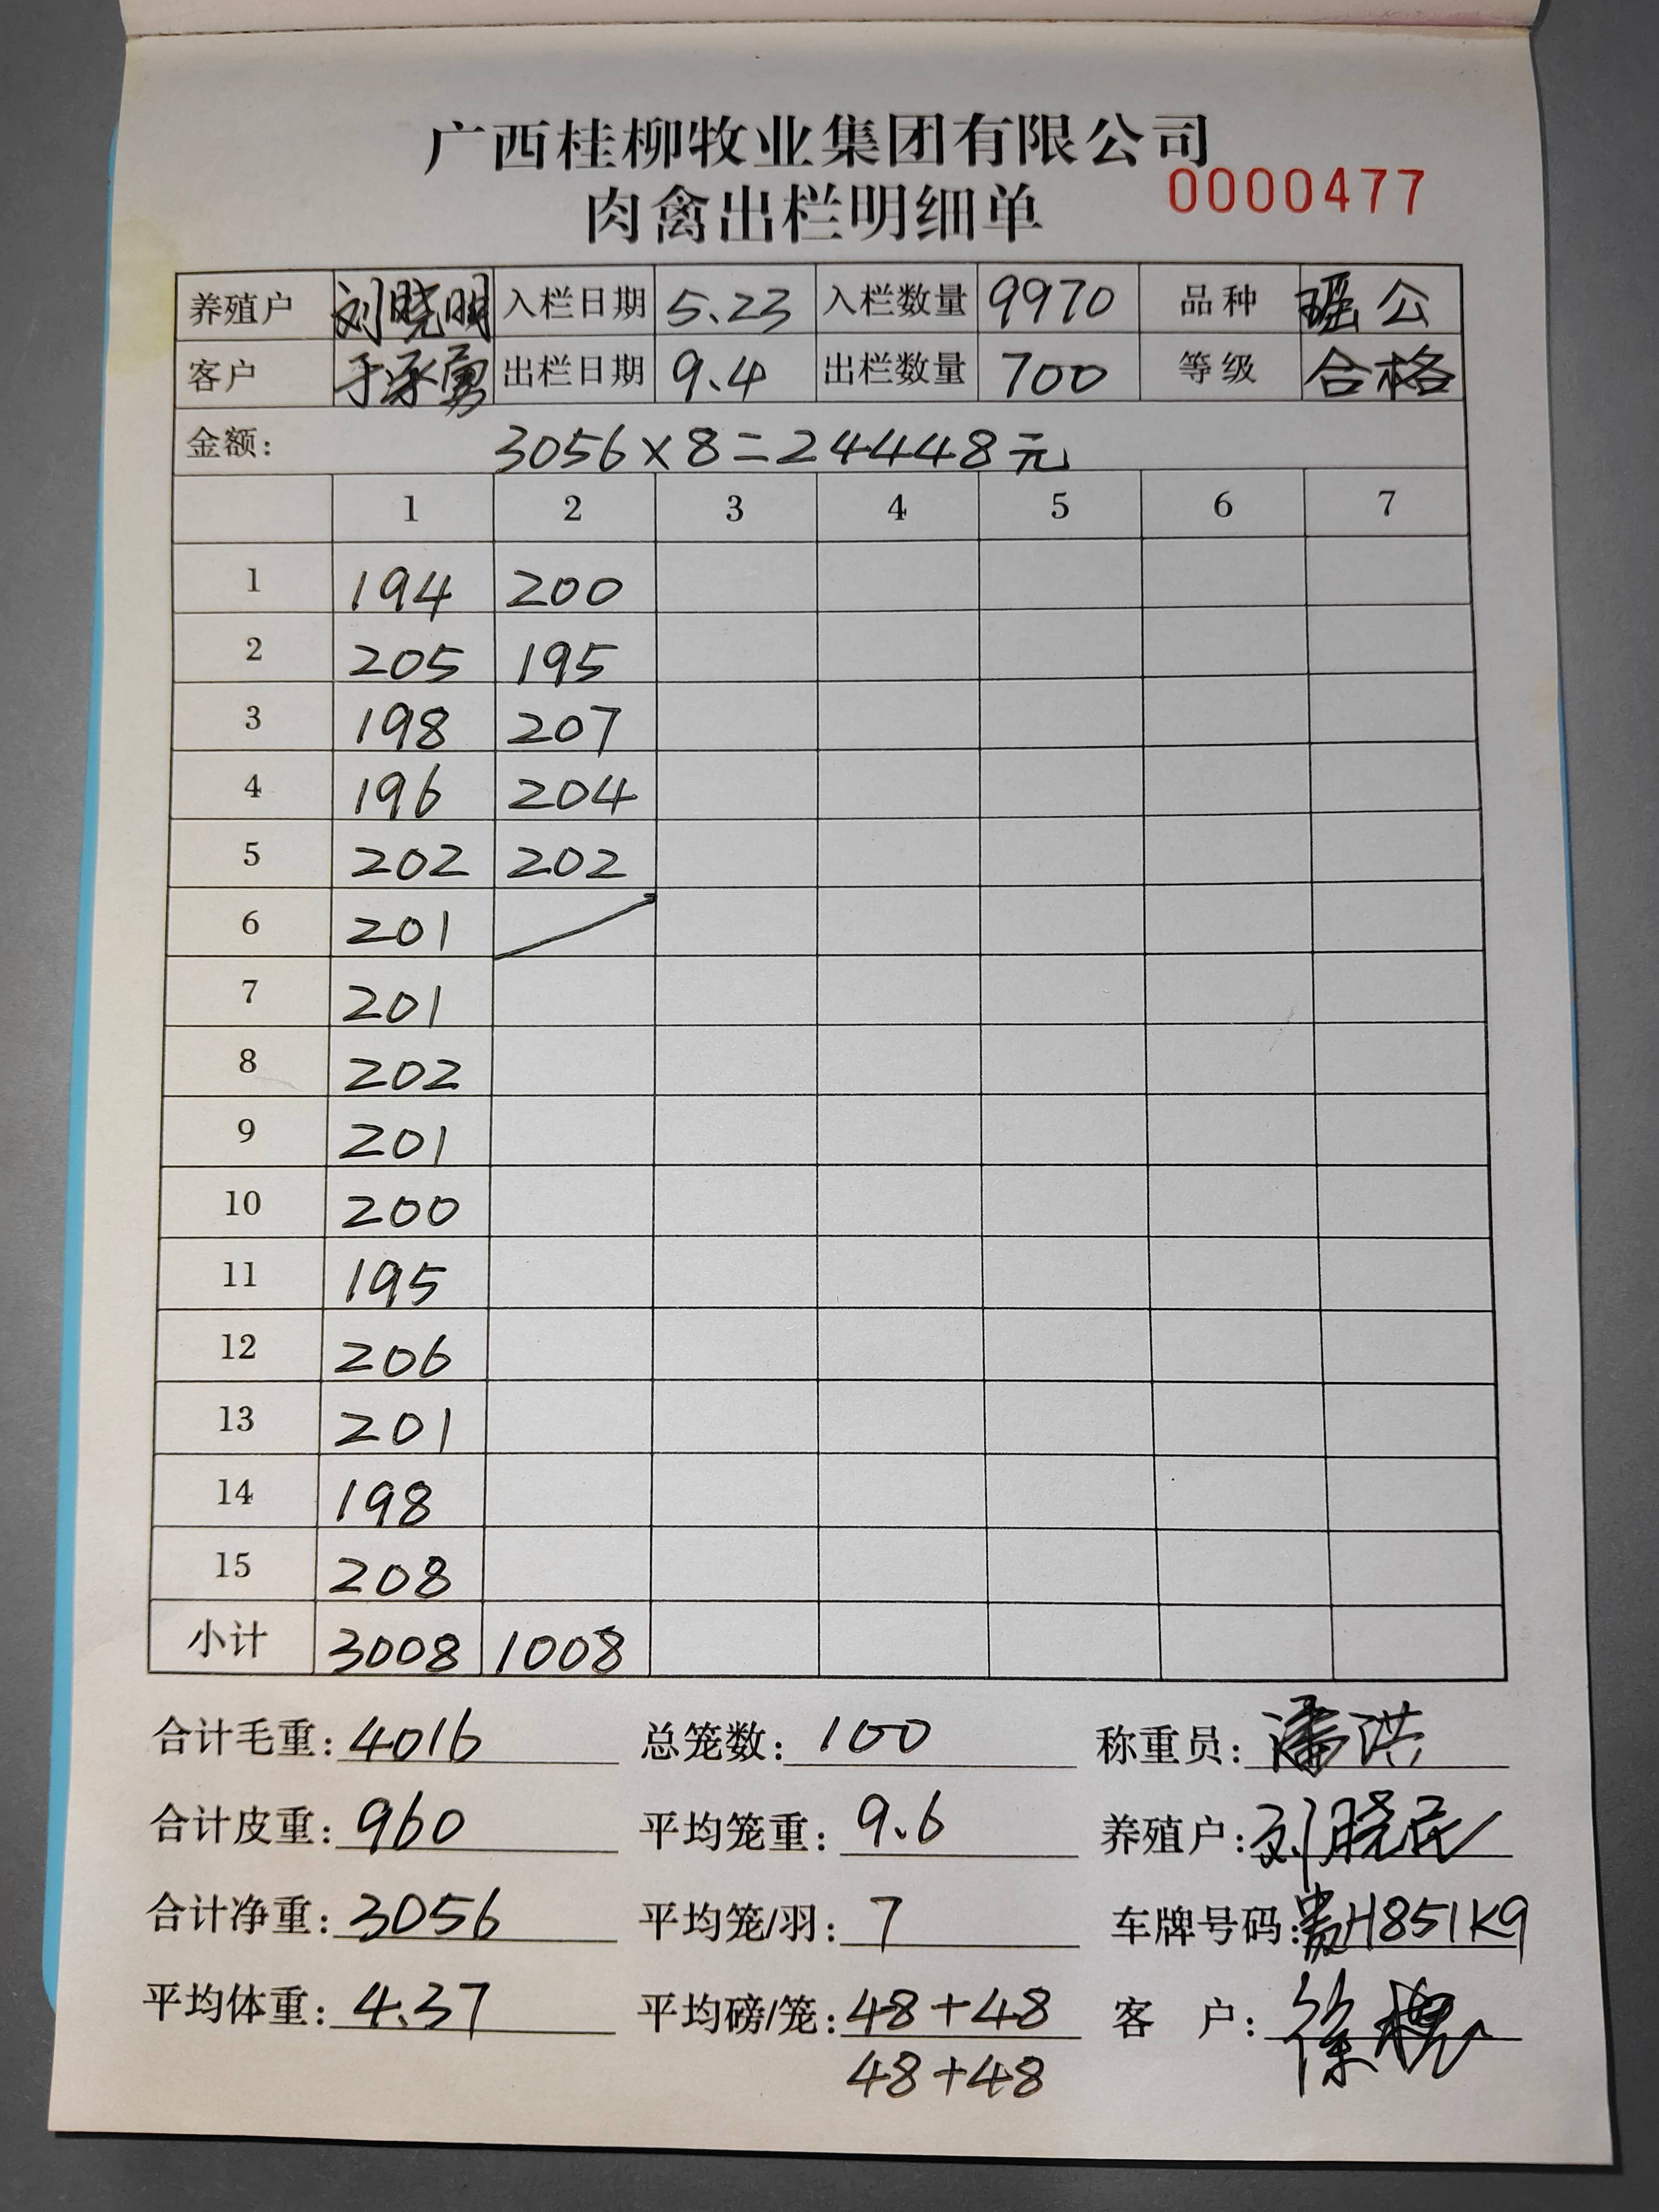 广西桂柳牧业集团有限公司
肉禽出栏明细单 0000477
养殖户 刘晓明 入栏日期 5.23 入栏数量 9970 品种 瑶公
客户 于承勇 出栏日期 9.4 出栏数量 700 等级 合格
金额: 3056×8=24448元
1 2 3 4 5 6 7
1 194 200
2 205 195
3 198 207
4 196 204
5 202 202
6 201
7 201
8 202
9 201
10 200
11 195
12 206
13 201
14 198
15 208
小计 3008 1008
合计毛重: 4016 总笼数: 100 称重员: 潘洪
合计皮重: 960 平均笼重: 9.6 养殖户: 刘晓
合计净重: 3056 平均笼/羽: 7 车牌号码: 贵H851K9
平均体重: 4.37 平均磅/笼: 48+48 客 户: 徐
48+48